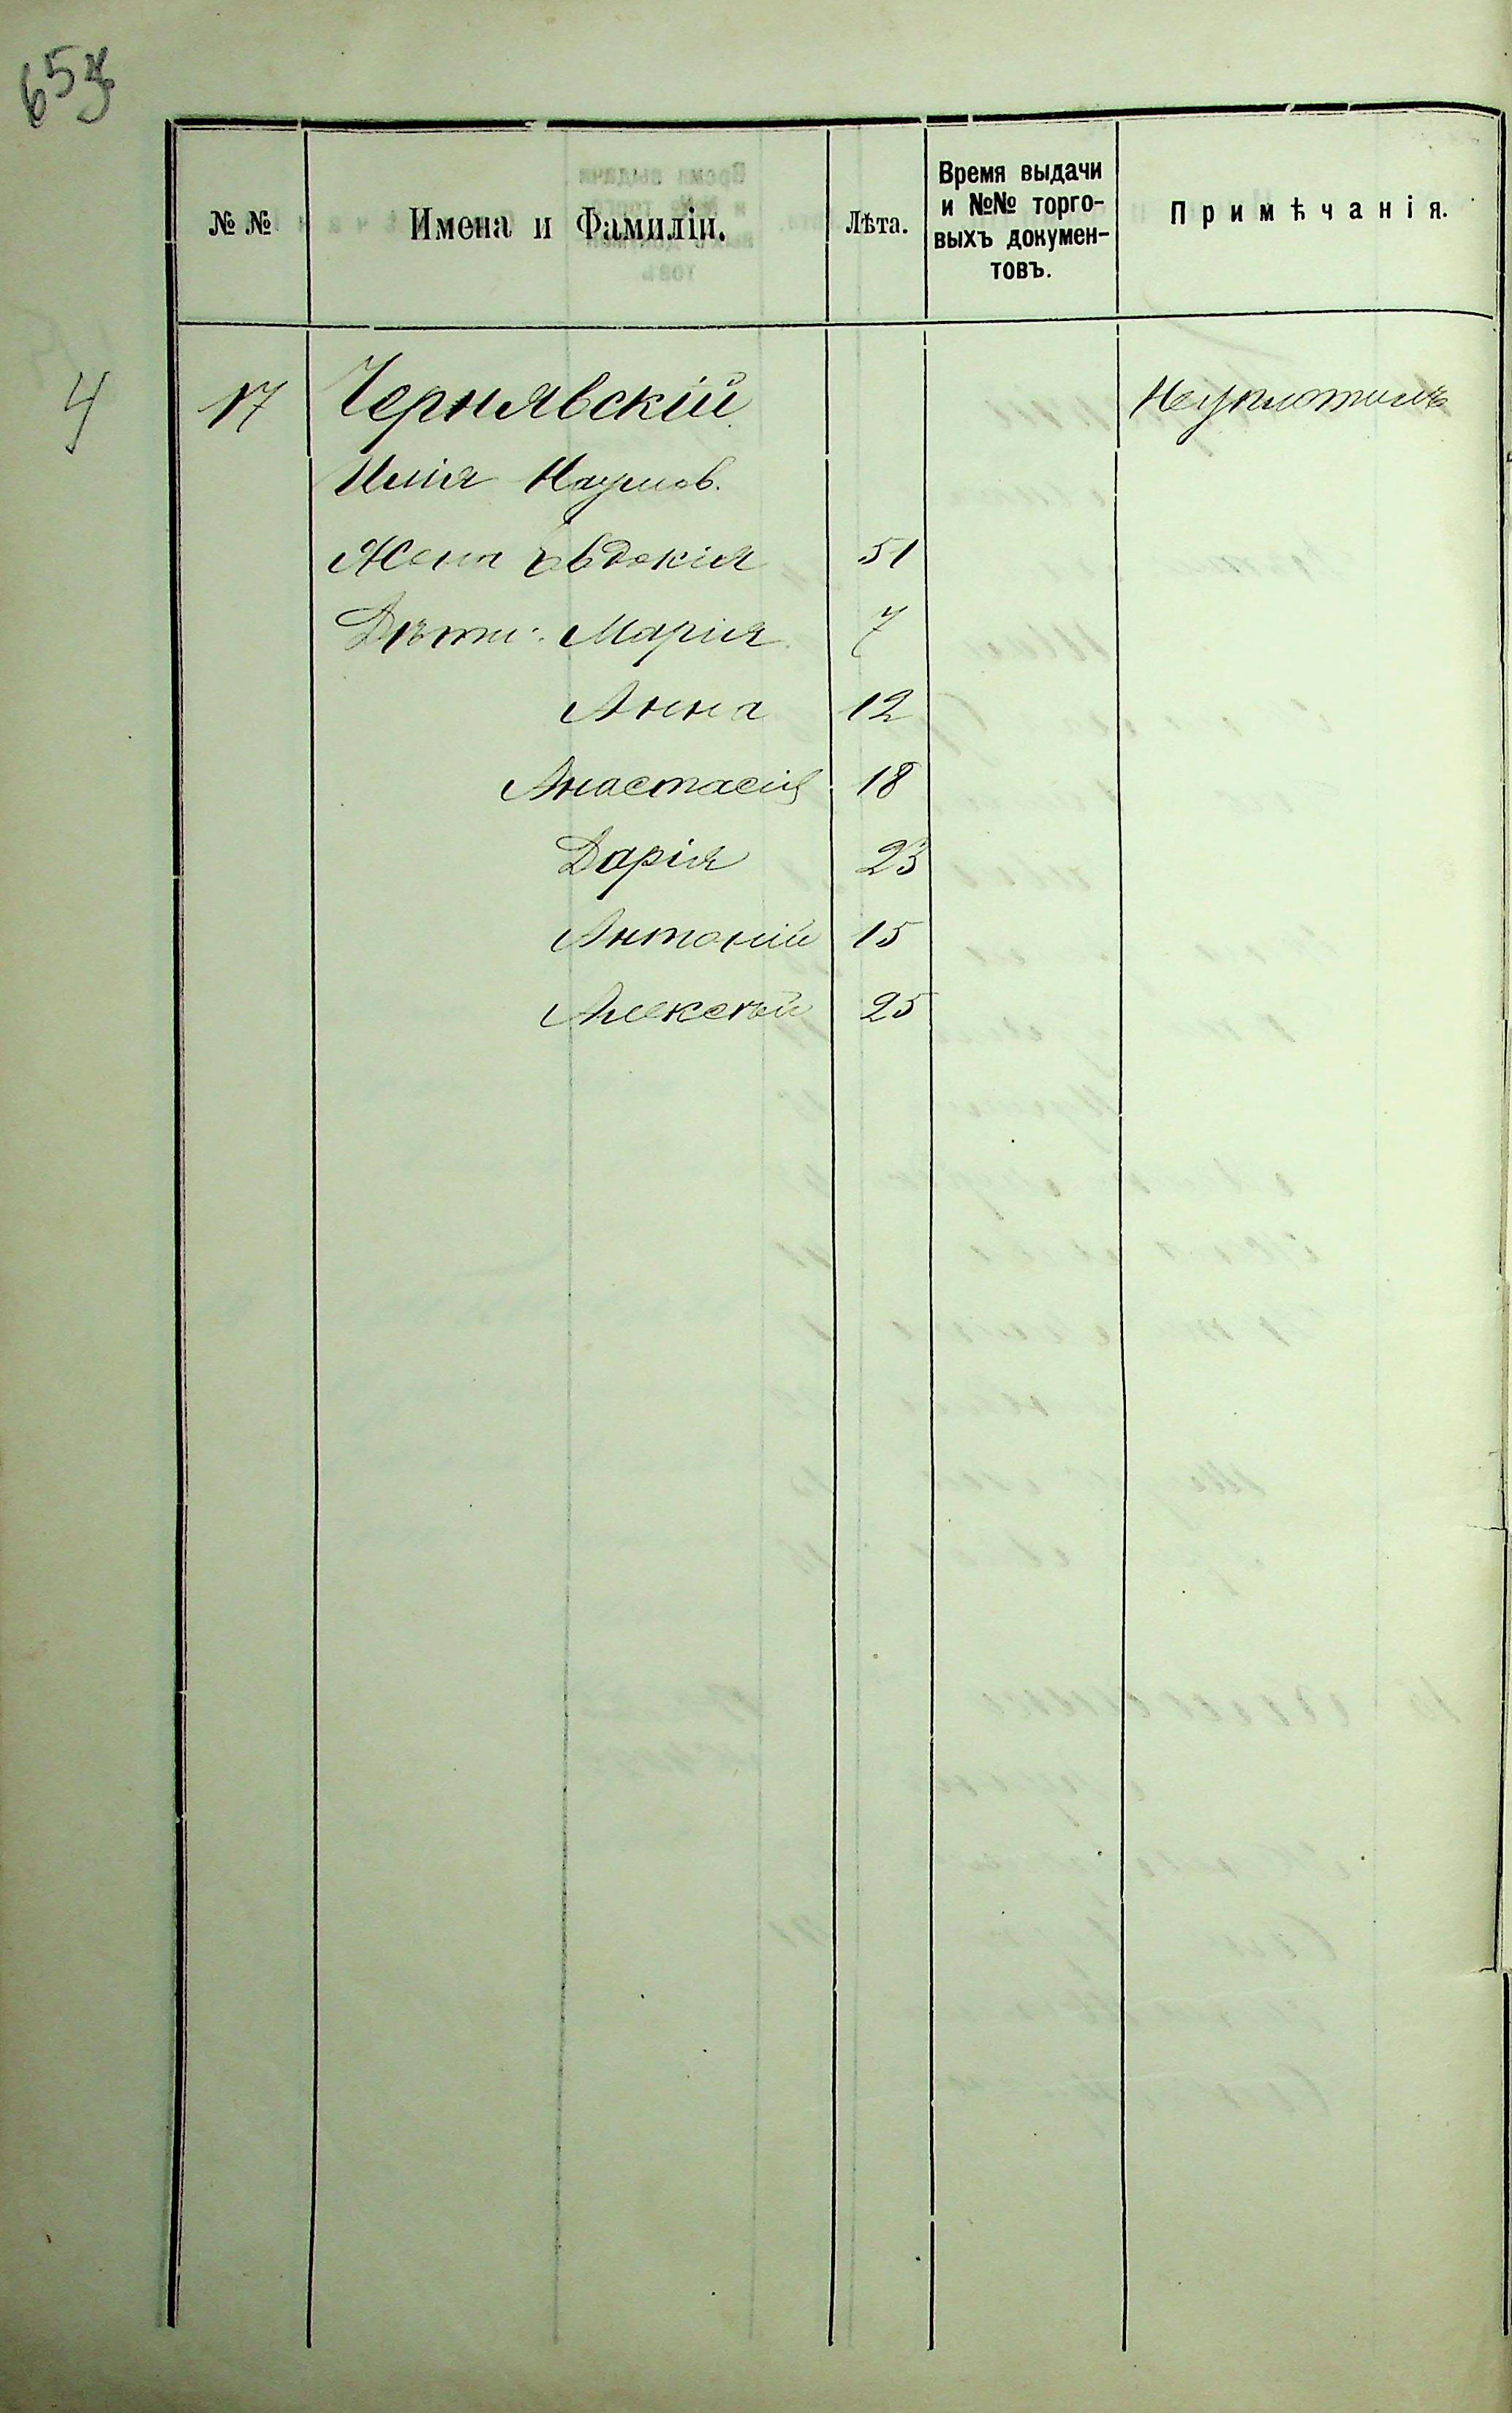 № №
Имена и Фамиліи.
Лѣта.
Время выдачи
и №№ торго-
выхъ докумен-
товъ.
Примѣчанія.
4 17 Чернявскій Неуплотилъ
Илія Наумов.
Жена Евдокія 51
Дѣти: Марія 7
Анна 12
Анастасія 18
Дарія 23
Антоній 15
Алексѣй 25